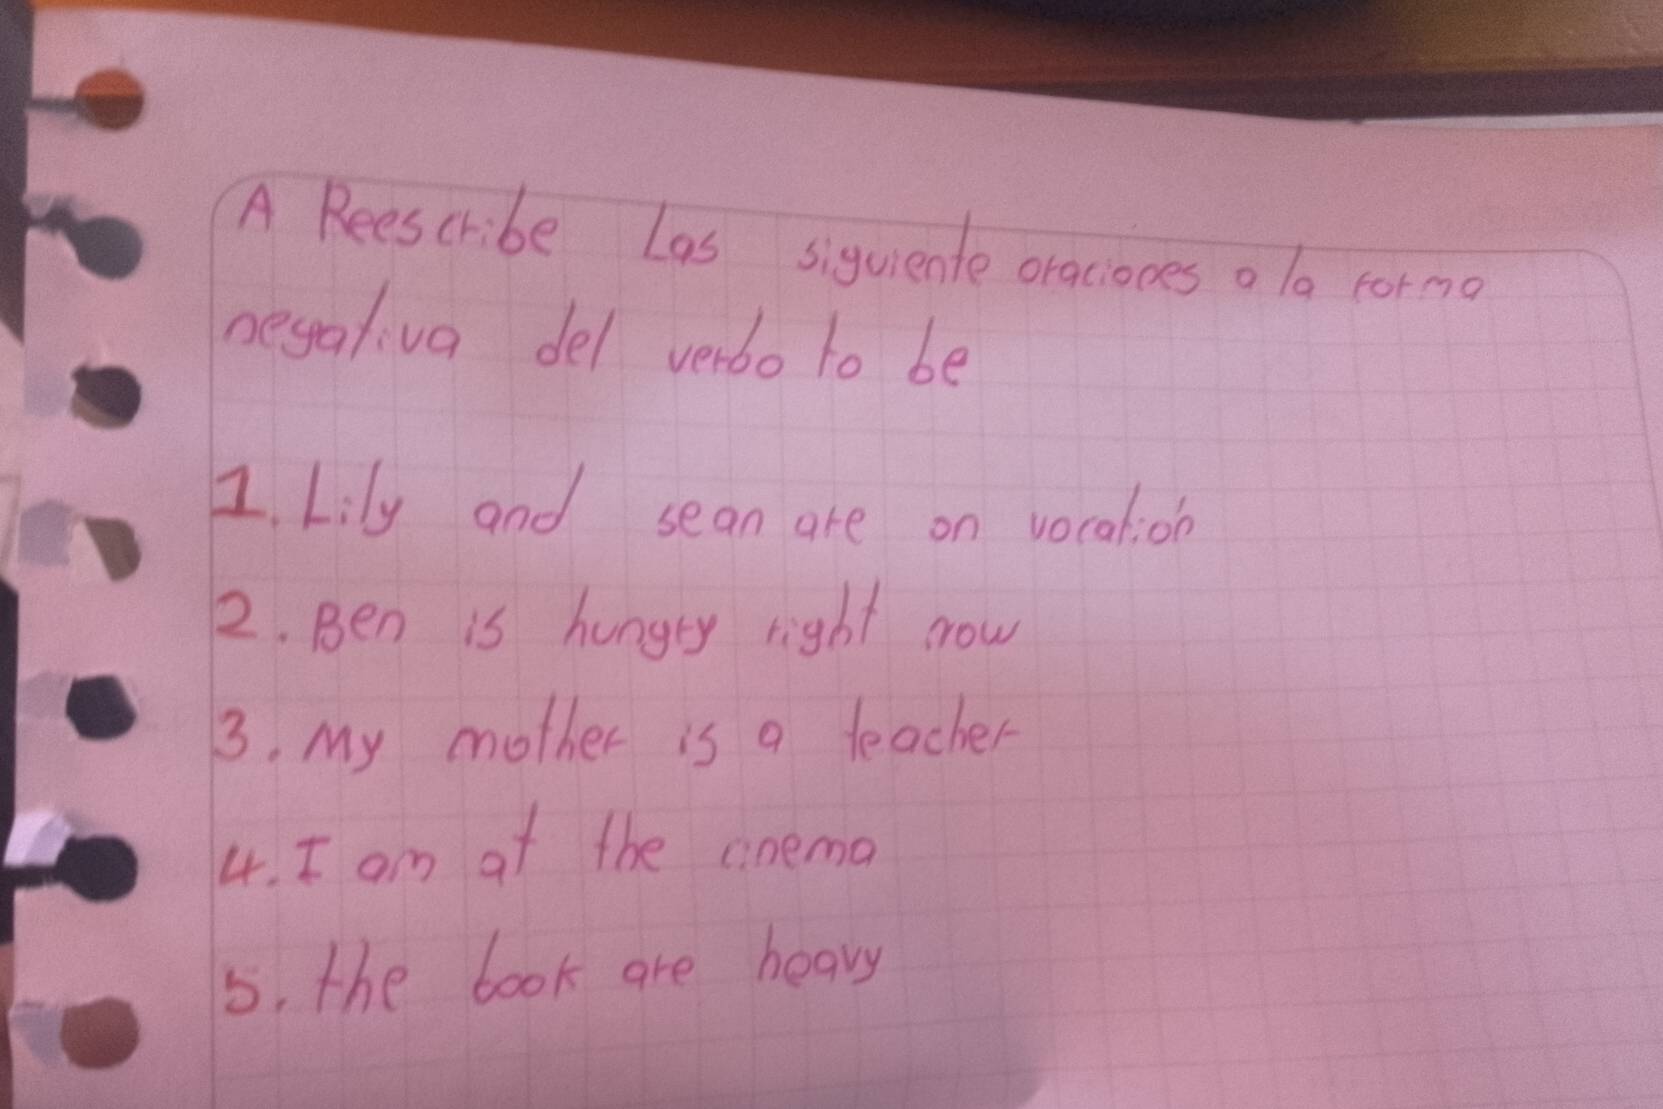 A Reescribe Las siguiente oraciones a la forma
negativa del verbo to be
1. Lily and sean are on vocation
2. Ben is hungry right now
3. My mother is a teacher
4. I am at the cinema
5. the book are heavy